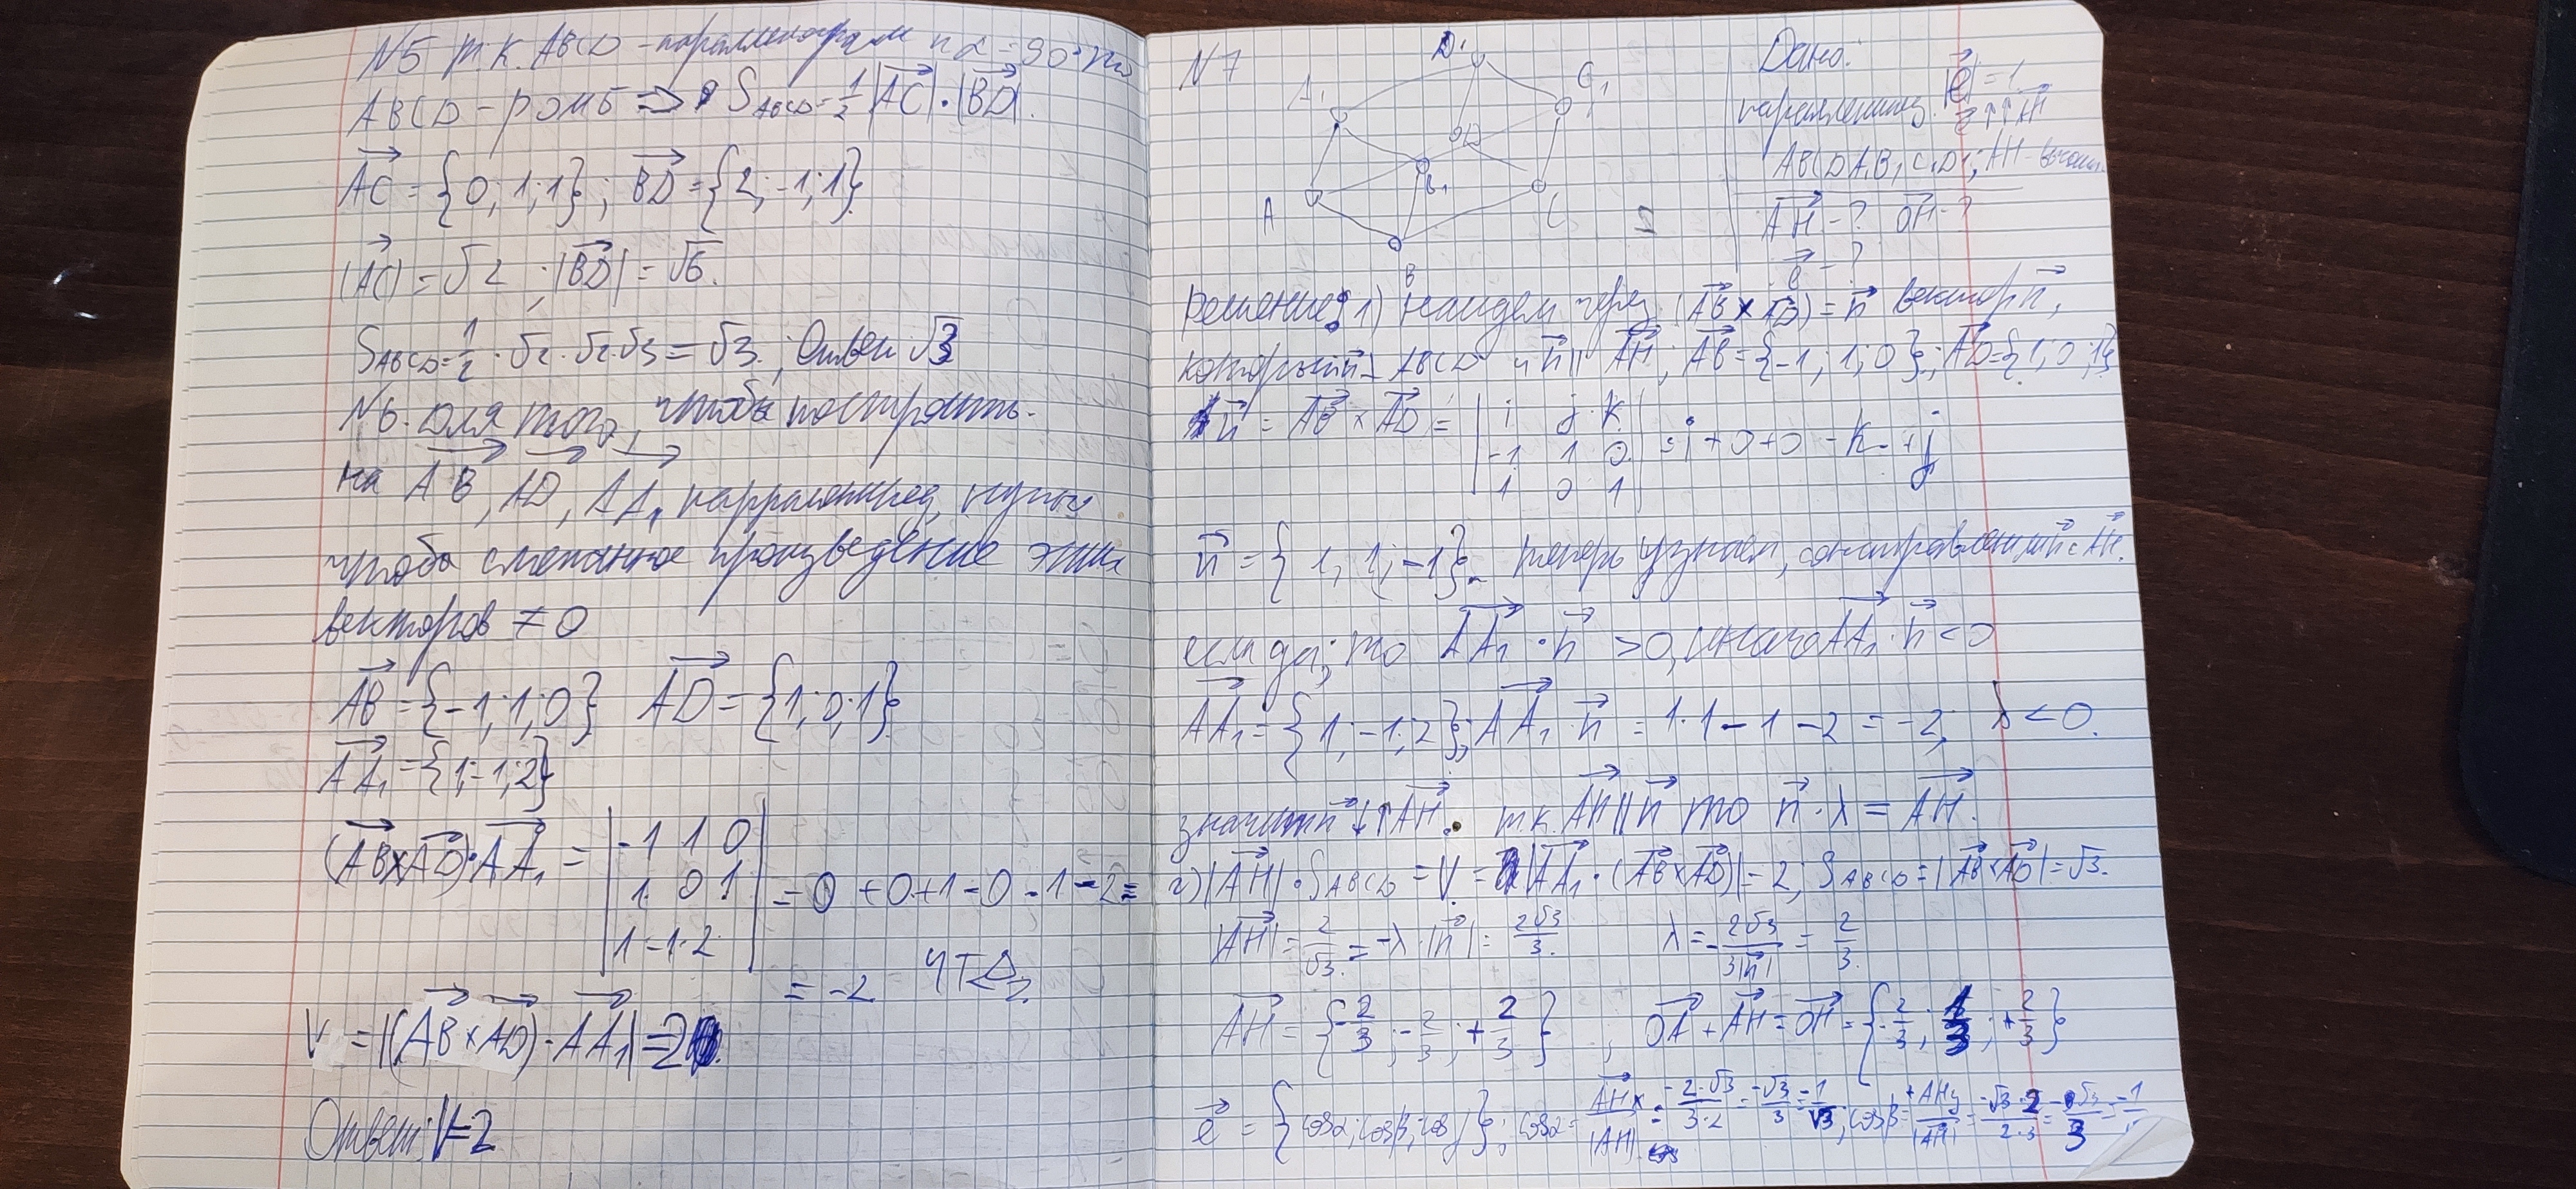 N5 т.к. ABCD - параллелограм и α = 90° то
ABCD - ромб => S_ABCD = 1/2 |AC| · |BD|.
AC = {0; 1; 1}; BD = {2; -1; 1}.
|AC| = √2 ; |BD| = √6.
S_ABCD = 1/2 · √2 · √2 · √3 = √3. ; Ответ √3
N6. Для того, чтобы построить
на AB, AD, AA₁ парралепипед, нужно
чтобы смешанное произведение этих
векторов ≠ 0
AB = {-1; 1; 0} AD = {1; 0; 1}
AA₁ = {1; -1; 2}
(AB×AD)·AA₁ = | -1 1 0 |
| 1 0 1 | = 0 + 0 + 1 - 0 - 1 - 2 =
| 1 -1 2 |
= -2 ЧТД
V = |(AB×AD)·AA₁| = 2
Ответ: V=2
N7
D₁
A₁
C₁
D
B₁
A
C
B
Дано:
параллепипед
ABCDA₁B₁C₁D₁; AH - высота
|e| = 1
e ↑↑ AH
AH - ? OH - ?
e - ?
Решение: 1) найдем через (AB × AD) = n вектор n,
который ⊥ ABCD и n || AH; AB = {-1; 1; 0}; AD = {1; 0; 1}
n = AB × AD = | i j k |
| -1 1 0 | = i + 0 + 0 - k - 0 + j
| 1 0 1 |
n = {1; 1; -1}. теперь узнаем, сонаправлен ли n с AH.
если да, то AA₁ · n > 0, иначе AA₁ · n < 0
AA₁ = {1; -1; 2}; AA₁ · n = 1·1 - 1 - 2 = -2; λ < 0.
значит n ↓↑ AH. т.к. AH || n то n · λ = AH.
2) |AH| · S_ABCD = V = |AA₁ · (AB×AD)| = 2; S_ABCD = |AB×AD| = √3.
|AH| = 2/√3 = -λ · |n| = 2√3/3. λ = - 2√3/3|n| = 2/3.
AH = {-2/3; -2/3; +2/3} ; OA + AH = OH = {-2/3; 1/3; +2/3}
e = {cosα; cosβ; cosγ}; cosα = AHx/|AH| = -2·√3/3·2 = -√3/3 = -1/√3; cosβ = +AHy/|AH| = -√3·2/2·3 = -√3/3 = -1